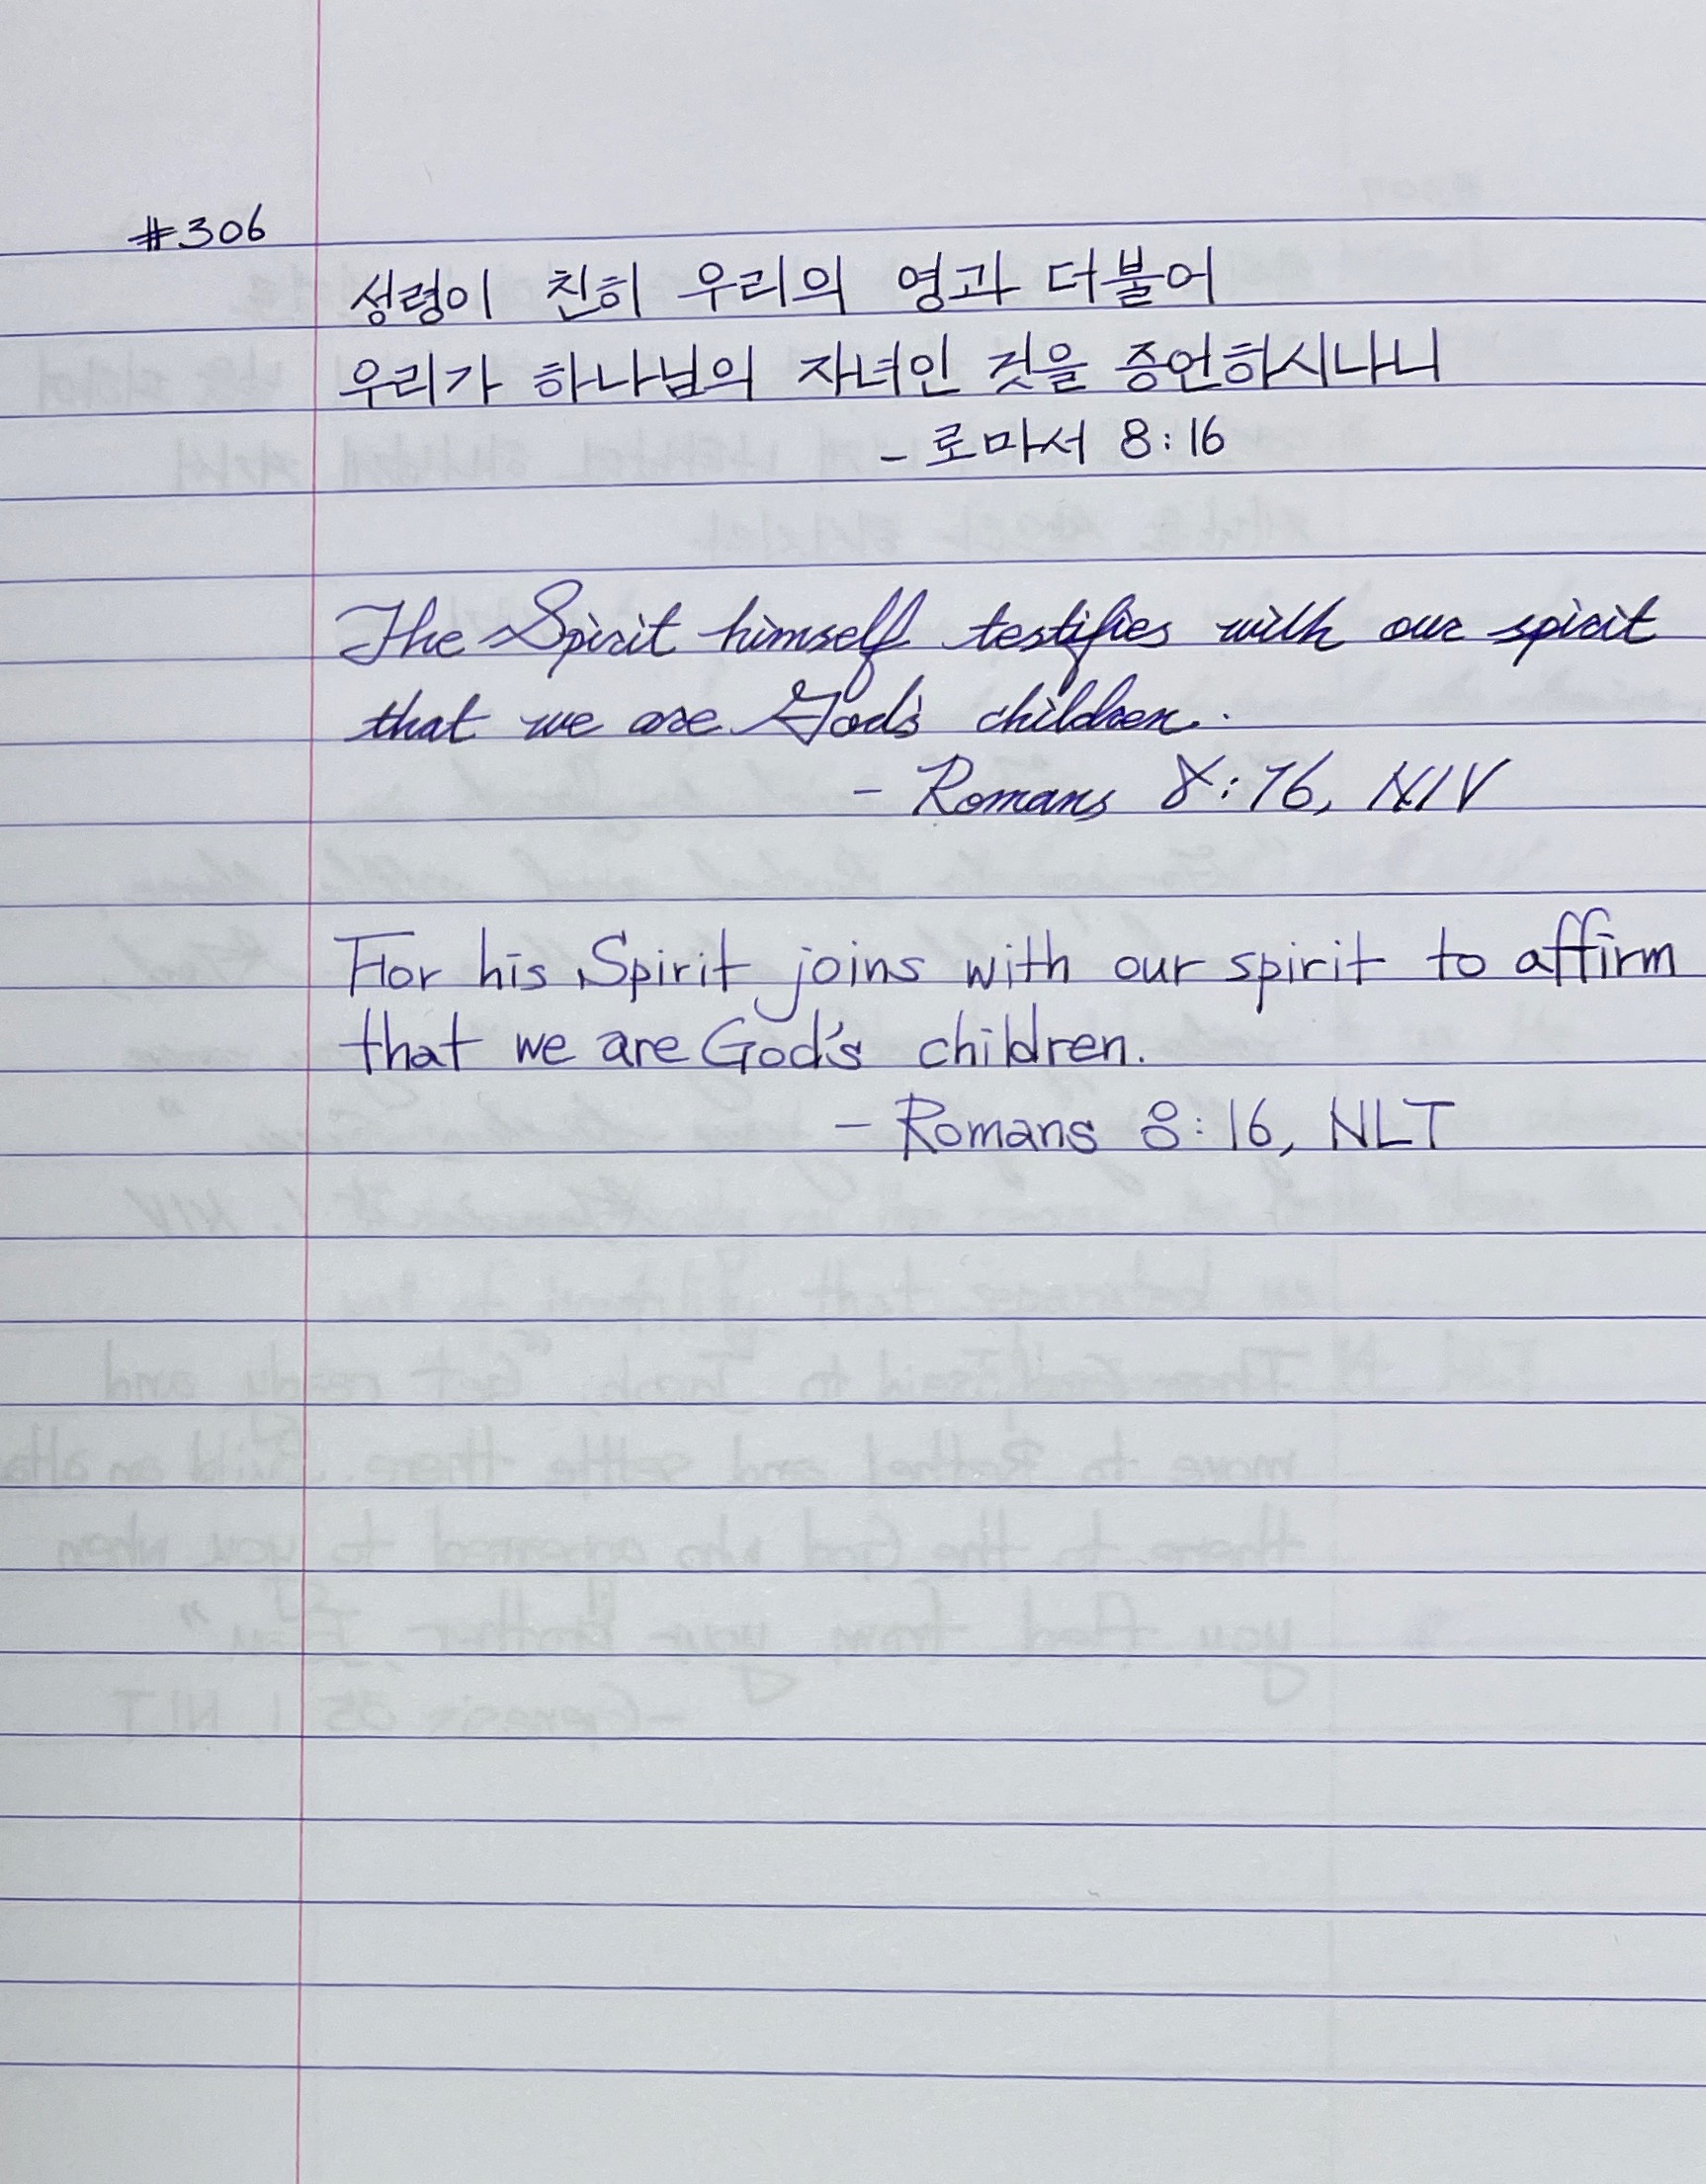 #306
성령이 친히 우리의 영과 더불어
우리가 하나님의 자녀인 것을 증언하시나니
- 로마서 8:16
The Spirit himself testifies with our spirit
that we are God's children.
- Romans 8:16, NIV
For his Spirit joins with our spirit to affirm
that we are God's children.
- Romans 8:16, NLT